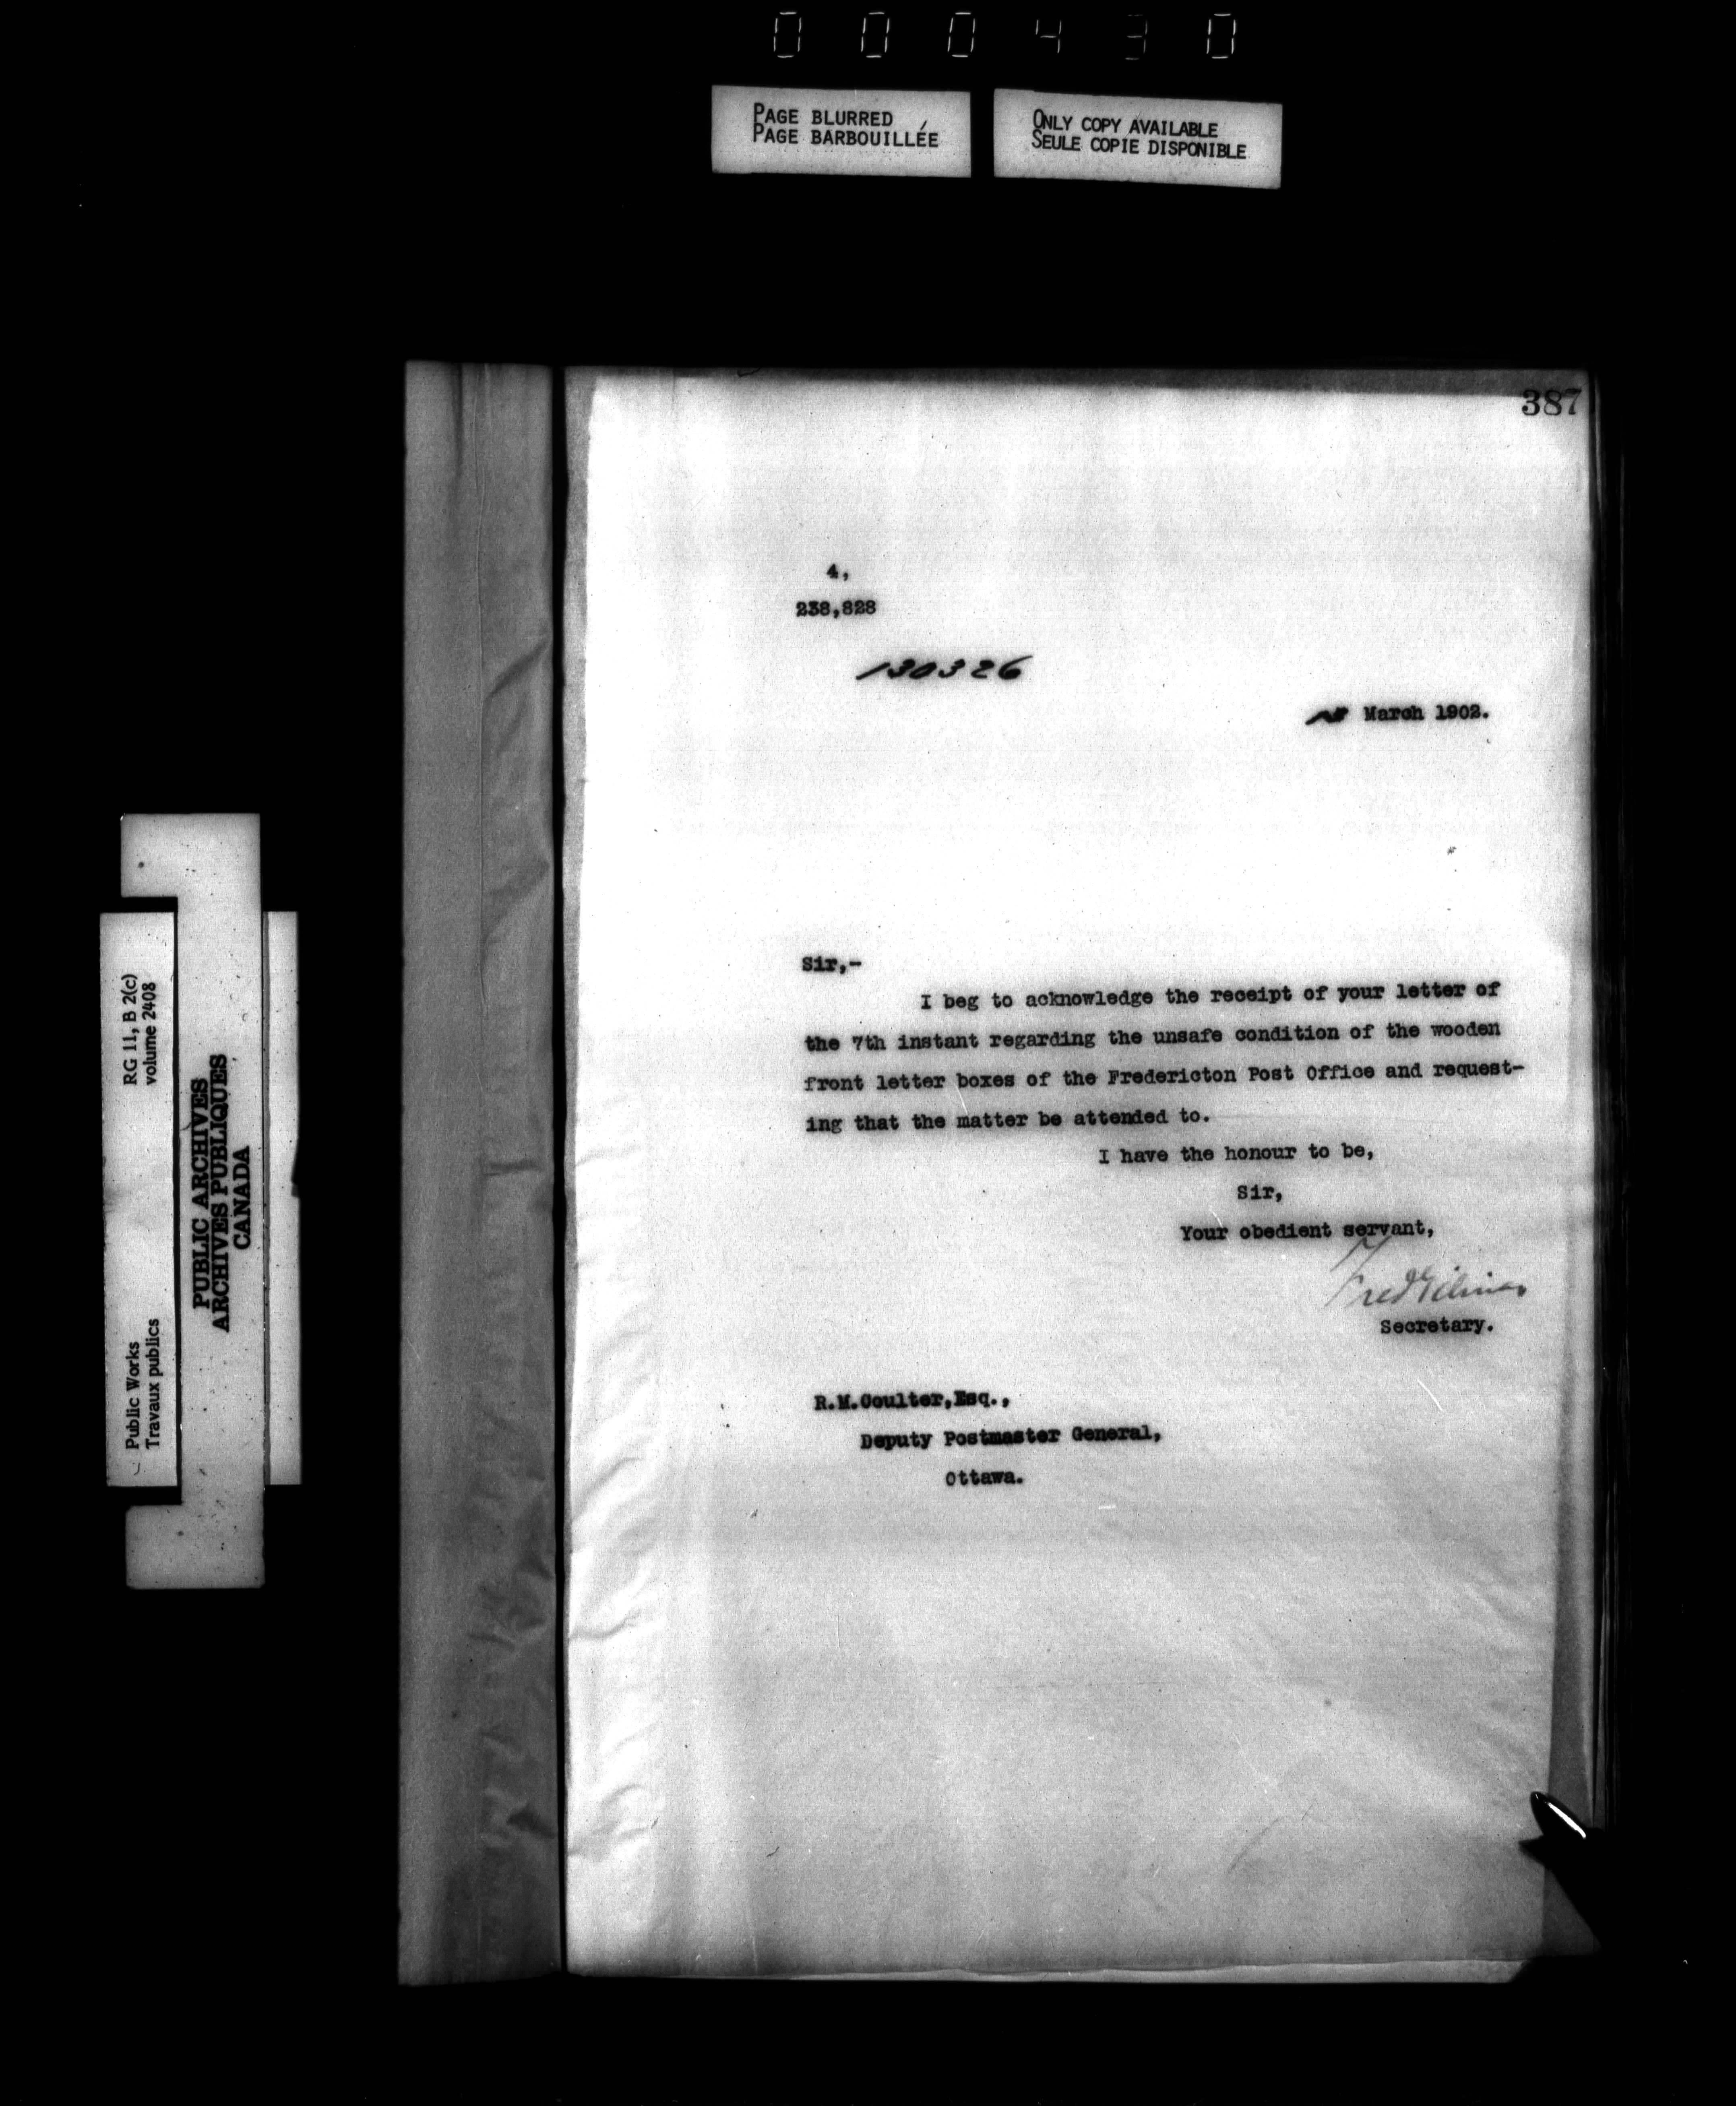 000430
PAGE BLURRED
PAGE BARBOUILLÉE
ONLY COPY AVAILABLE
SEULE COPIE DISPONIBLE
387
4,
238,828
130326
March 1902.
Sir,-
I beg to acknowledge the receipt of your letter of
the 7th instant regarding the unsafe condition of the wooden
front letter boxes of the Fredericton Post Office and request-
ing that the matter be attended to.
I have the honour to be,
Sir,
Your obedient servant,
Fred
Secretary.
R.M.Coulter,Esq.,
Deputy Postmaster General,
Ottawa.
RG 11, B 2(c)
volume 2408
Public Works
Travaux publics
PUBLIC ARCHIVES
ARCHIVES PUBLIQUES
CANADA